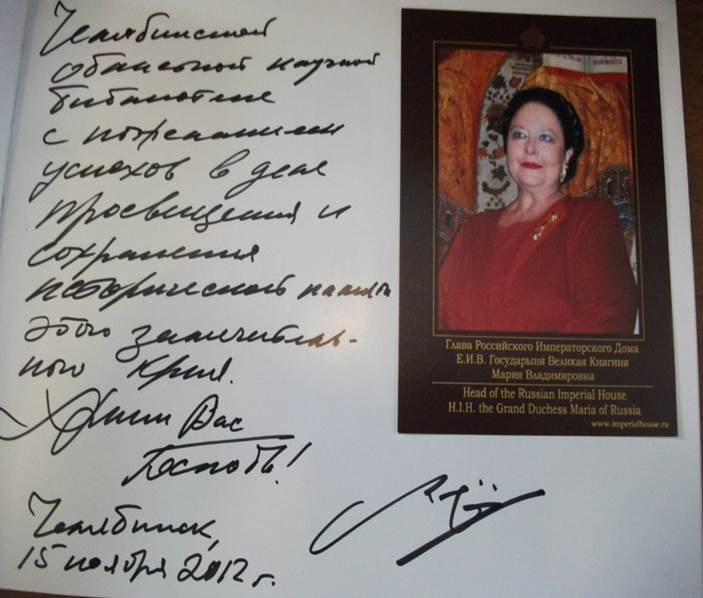 Челябинской
областной научной
библиотеке
с пожеланием
успехов в деле
просвещения и
сохранения
исторической памяти
этого замечатель-
ного края.
Храни Вас
Господь!
Челябинск,
15 ноября 2012 г.
Глава Российского Императорского Дома
Е.И.В. Государыня Великая Княгиня
Мария Владимировна
Head of the Russian Imperial House
H.I.H. the Grand Duchess Maria of Russia
www.imperialhouse.ru